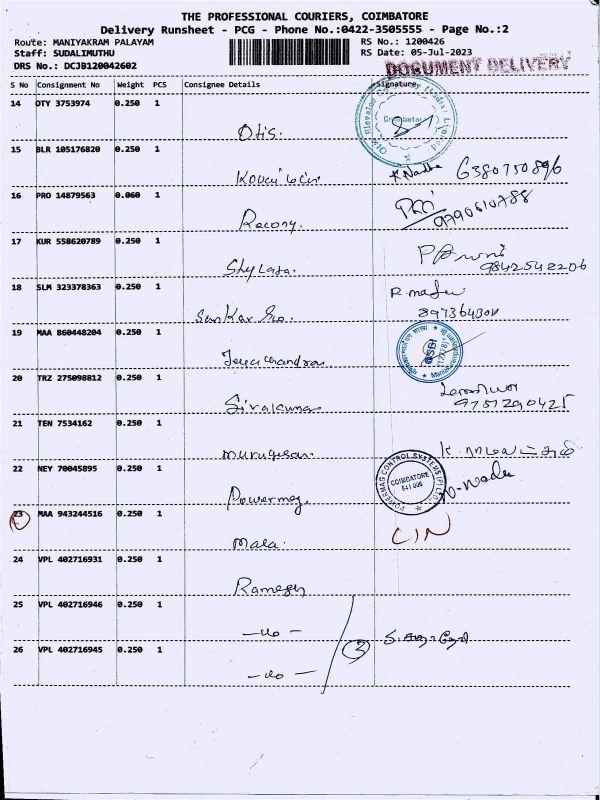 THE PROFESSIONAL COURIERS, COIMBATORE
Delivery Runsheet - PCG - Phone No.:0422-3505555 - Page No.:2
Route: MANIYAKRAM PALAYAM RS No.: 1200426
Staff: SUDALIMUTHU RS Date: 05-Jul-2023
DRS No.: DCJB120042602
DOCUMENT DELIVERY
S No Consignment No Weight PCS Consignee Details Signature
14 OTY 3753974 0.250 1
Otis.
15 BLR 105176820 0.250 1
K. Nadha 6380750896
16 PRO 14879563 0.060 1
Racony.
9790610788
17 KUR 558620789 0.250 1
Shylaja.
9842542206
18 SLM 323378363 0.250 1
R. madhu
19 MAA 860448204 0.250 1
Jeyachandran
20 TRZ 275098812 0.250 1
Sivakumar
9751290425
21 TEN 7534162 0.250 1
murugesan.
22 NEY 70045895 0.250 1
Powermag.
POWERMAG CONTROL SYSTEMS (P) LTD.
COIMBATORE
23 MAA 943244516 0.250 1
Mala.
CIN
24 VPL 402716931 0.250 1
Ramesh
25 VPL 402716946 0.250 1
-do-
3
26 VPL 402716945 0.250 1
-do-